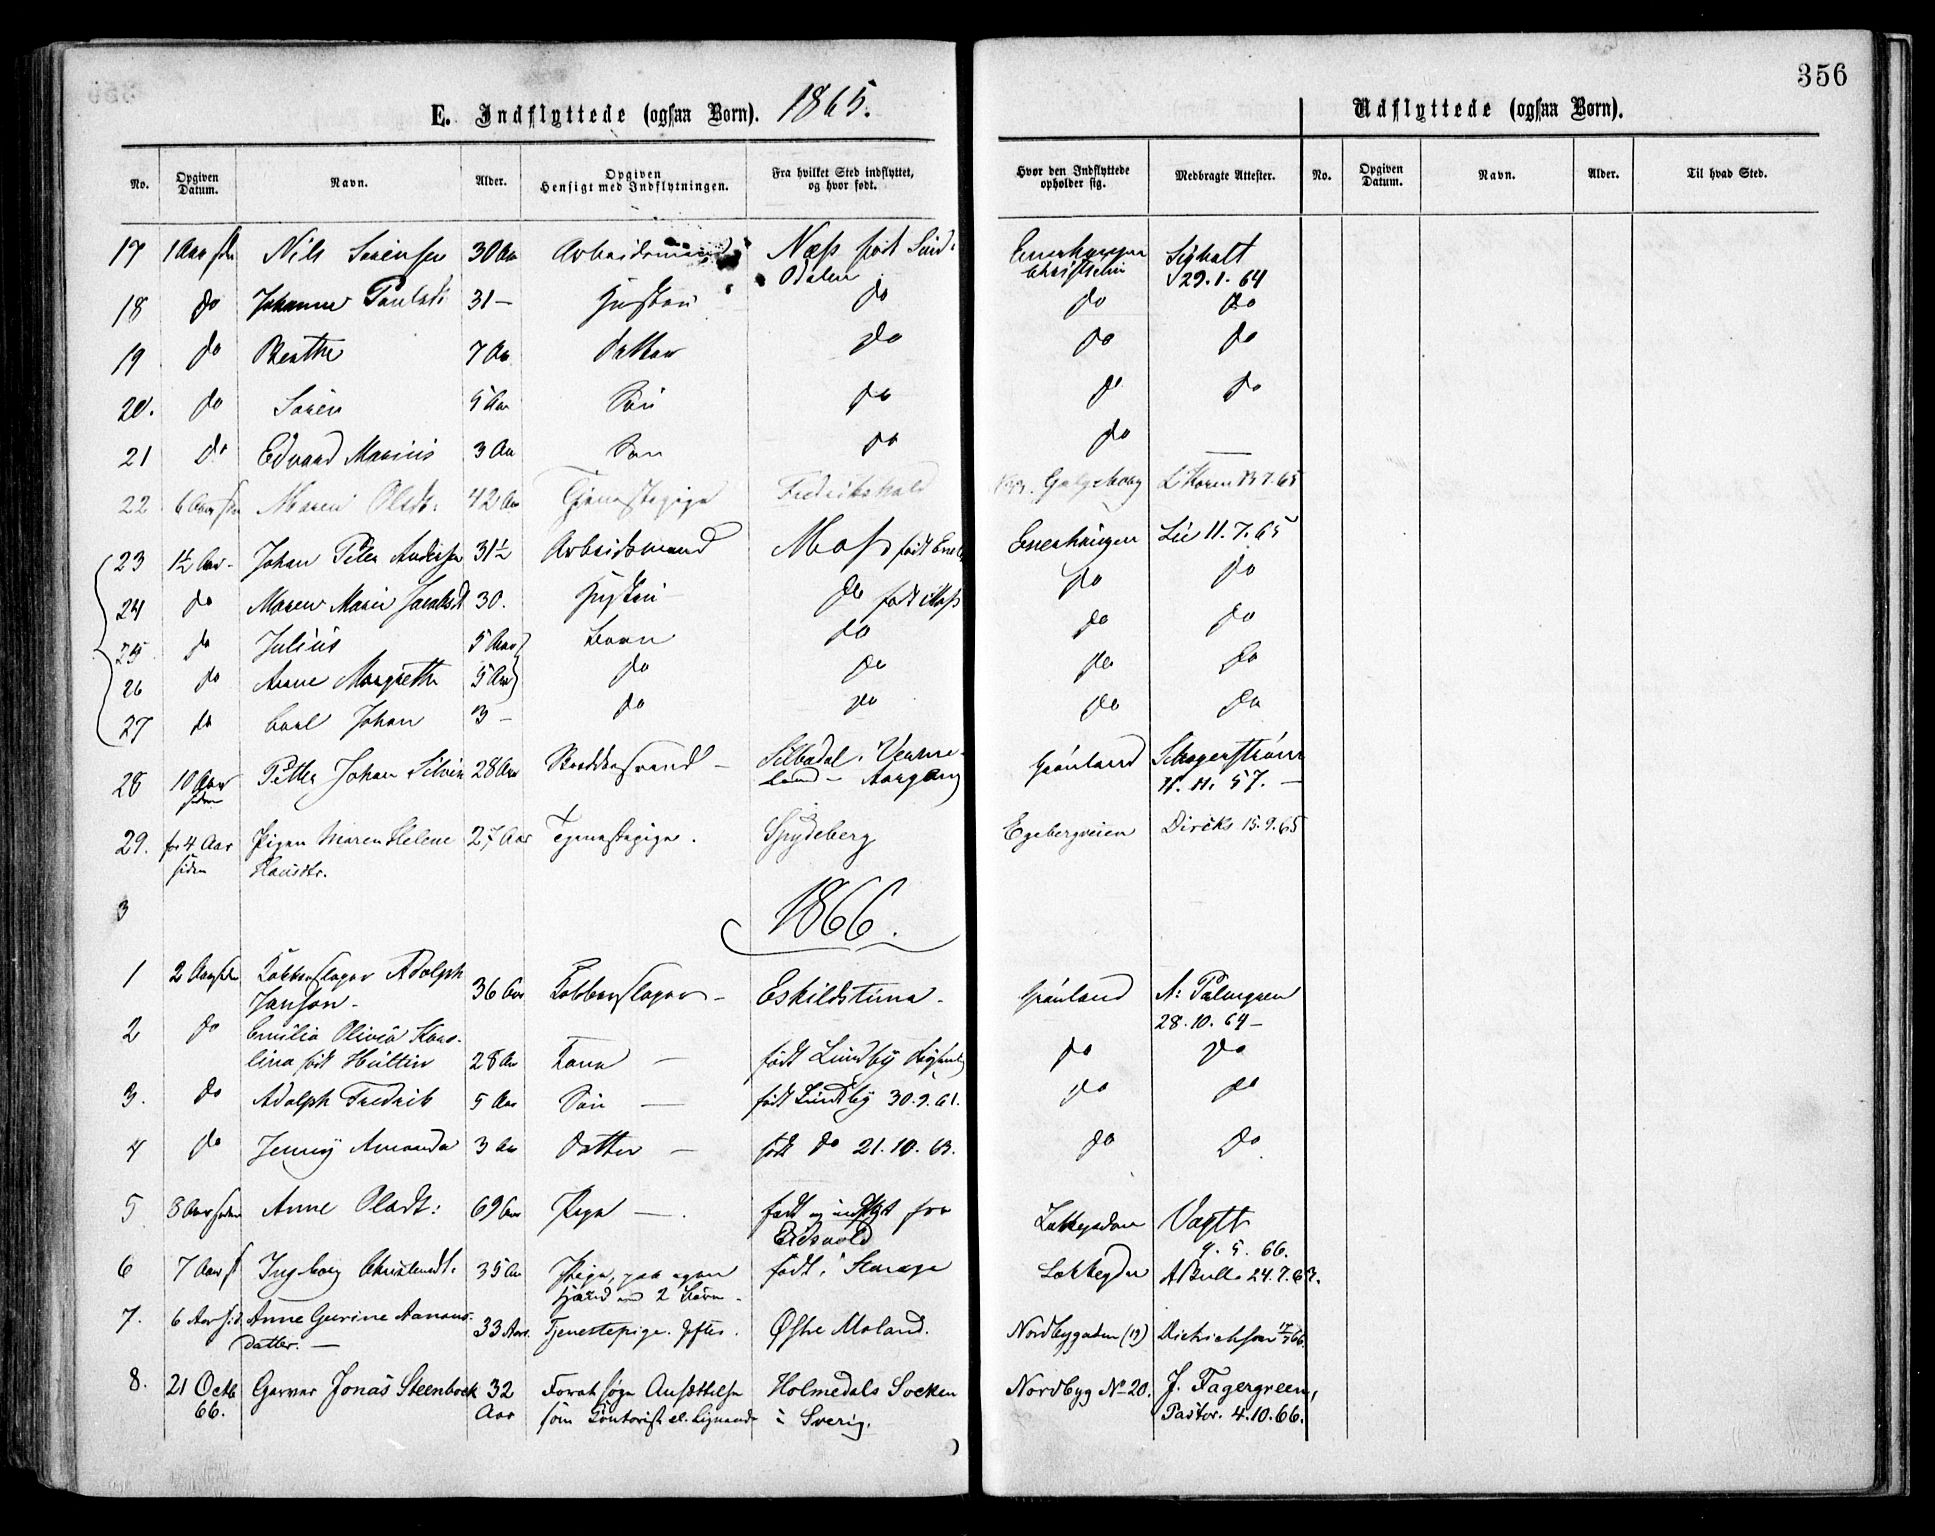 356
E. Indflyttede (ogsaa Børn). 1865.
Udflyttede (ogsaa Børn).
No. Opgiven Datum. Navn. Alder. Opgiven Hensigt med Indflytningen. Fra hvilket Sted indflyttet, og hvor født. Hvor den Indflyttede opholder sig. Medbragte Attester. No. Opgiven Datum. Navn. Alder. Til hvad Sted.
17 1 Aar sid Nils Sørensen 30 Aar Arbeidsmand Næss født Sød: Enerhaugen Sigholt
Odalen Christania 29.1.64
18 do Johanne Paulsd: 31 — Hustru do do do
19 do Berthe 7 Aar datter do do do
20. do Søren 5 Aar Søn do do do
21 do Edvard Marius 3 Aar Søn do do —
22 6 Aar siden Maren Olsdt: 42 Aar Tjenestepige Fredrikshald Galgeberg 13.7.65
23 1½ Aar - Johan Peter Andersen 31½ Arbeidsmand Moss født Enerhaugen Lie 11.7.65
24 do Maren Marie Jacobsd 30. Hustru do født Moss do do
25 do Julius 5 Aar Børn do do do
26 do Anne Margrethe 5 Aar do do do do
27 do Carl Johan 3 — do do do do
28 10 Aar Petter Johan Silvén 28 Aar Skræddersvend — Silbodal i Verme- Grønland Schagerstrøm
siden land — 11.11.57. —
29. for 4 Aar Pigen Maren Helene 27 Aar Tjenestepige. Spydeberg Egebergveien Diriks 15.9.65
siden Hansdtr.
3
1866.
1 2 Aar siden Kobberslager Adolph 36 Aar Kobberslager — Eskildstuna - Grønland A: Palmgren
Janson — 28.10.64 —
2 do Emilia Olivia Karo-
lina født Hultin 28 Aar Kone — født Lundby do do
3. do Adolph Fredrik 5 Aar Søn — født Lundby 30.9.61. do do
4 do Jenny Amanda 3 Aar Datter — født do 21.10.63. do do
5 8 Aar siden Anne Olsdt: 69 Aar Pige —. født og indflyt fra Lakkegaden Vogtt
Eidsvold 9.5.66.
6 7 Aar s Ingeborg Christensdt: 35 Aar Pige, paa egen født i Stange Lakkegden A Bull 24.7.63.
Haand med 2 Børn —
7. 6 Aar sid. Anne Gurine Aanons- 33 Aar. Tjenestepige. Gftes. Østre Moland. Nordbygaden (19) Dietrichson 17/7 66.
datter. —
8. 21 Octb Garver Jonas Steenbock 32 For at søge Ansættelse Holmedals Socken Nordbyg No 20. J. Fagergreen,
66. Aar som Contorist el. Lignende i Sverig. Pastor. 4.10.66.